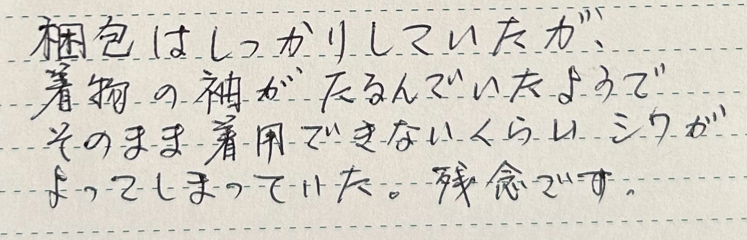 梱包はしっかりしていたが、
着物の袖がたるんでいたようで
そのまま着用できないくらいシワが
よってしまっていた。残念です。